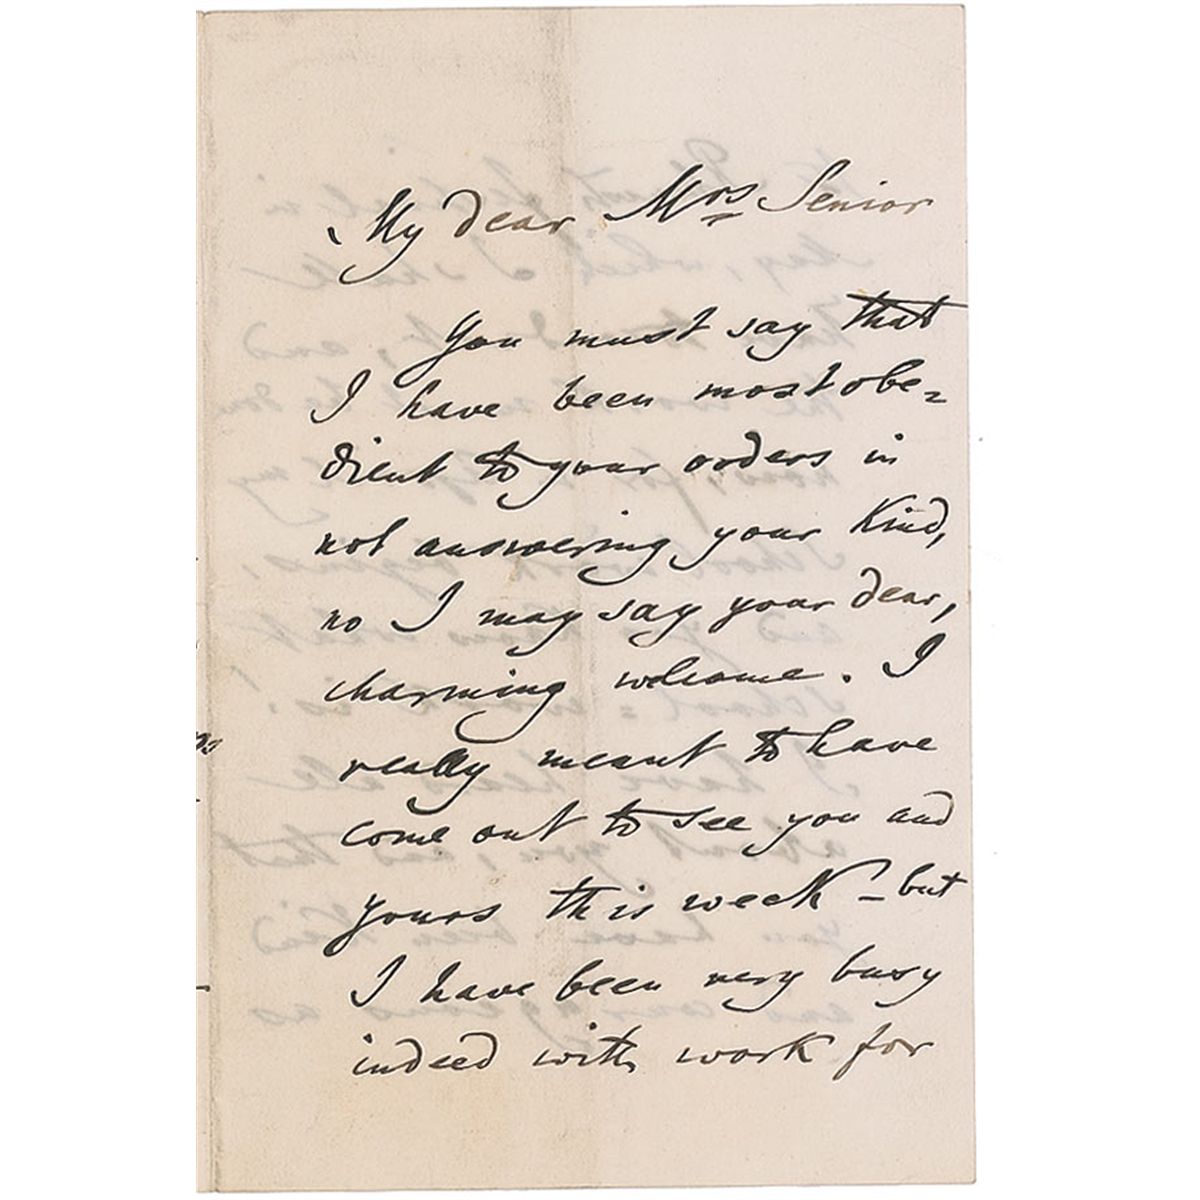 My dear Mrs Senior
You must say that
I have been most obe=
dient to your orders in
not answering your kind,
no I may say your dear,
charming welcome. I
really meant to have
come out to see you and
yours this week – but
I have been very busy
indeed with work for